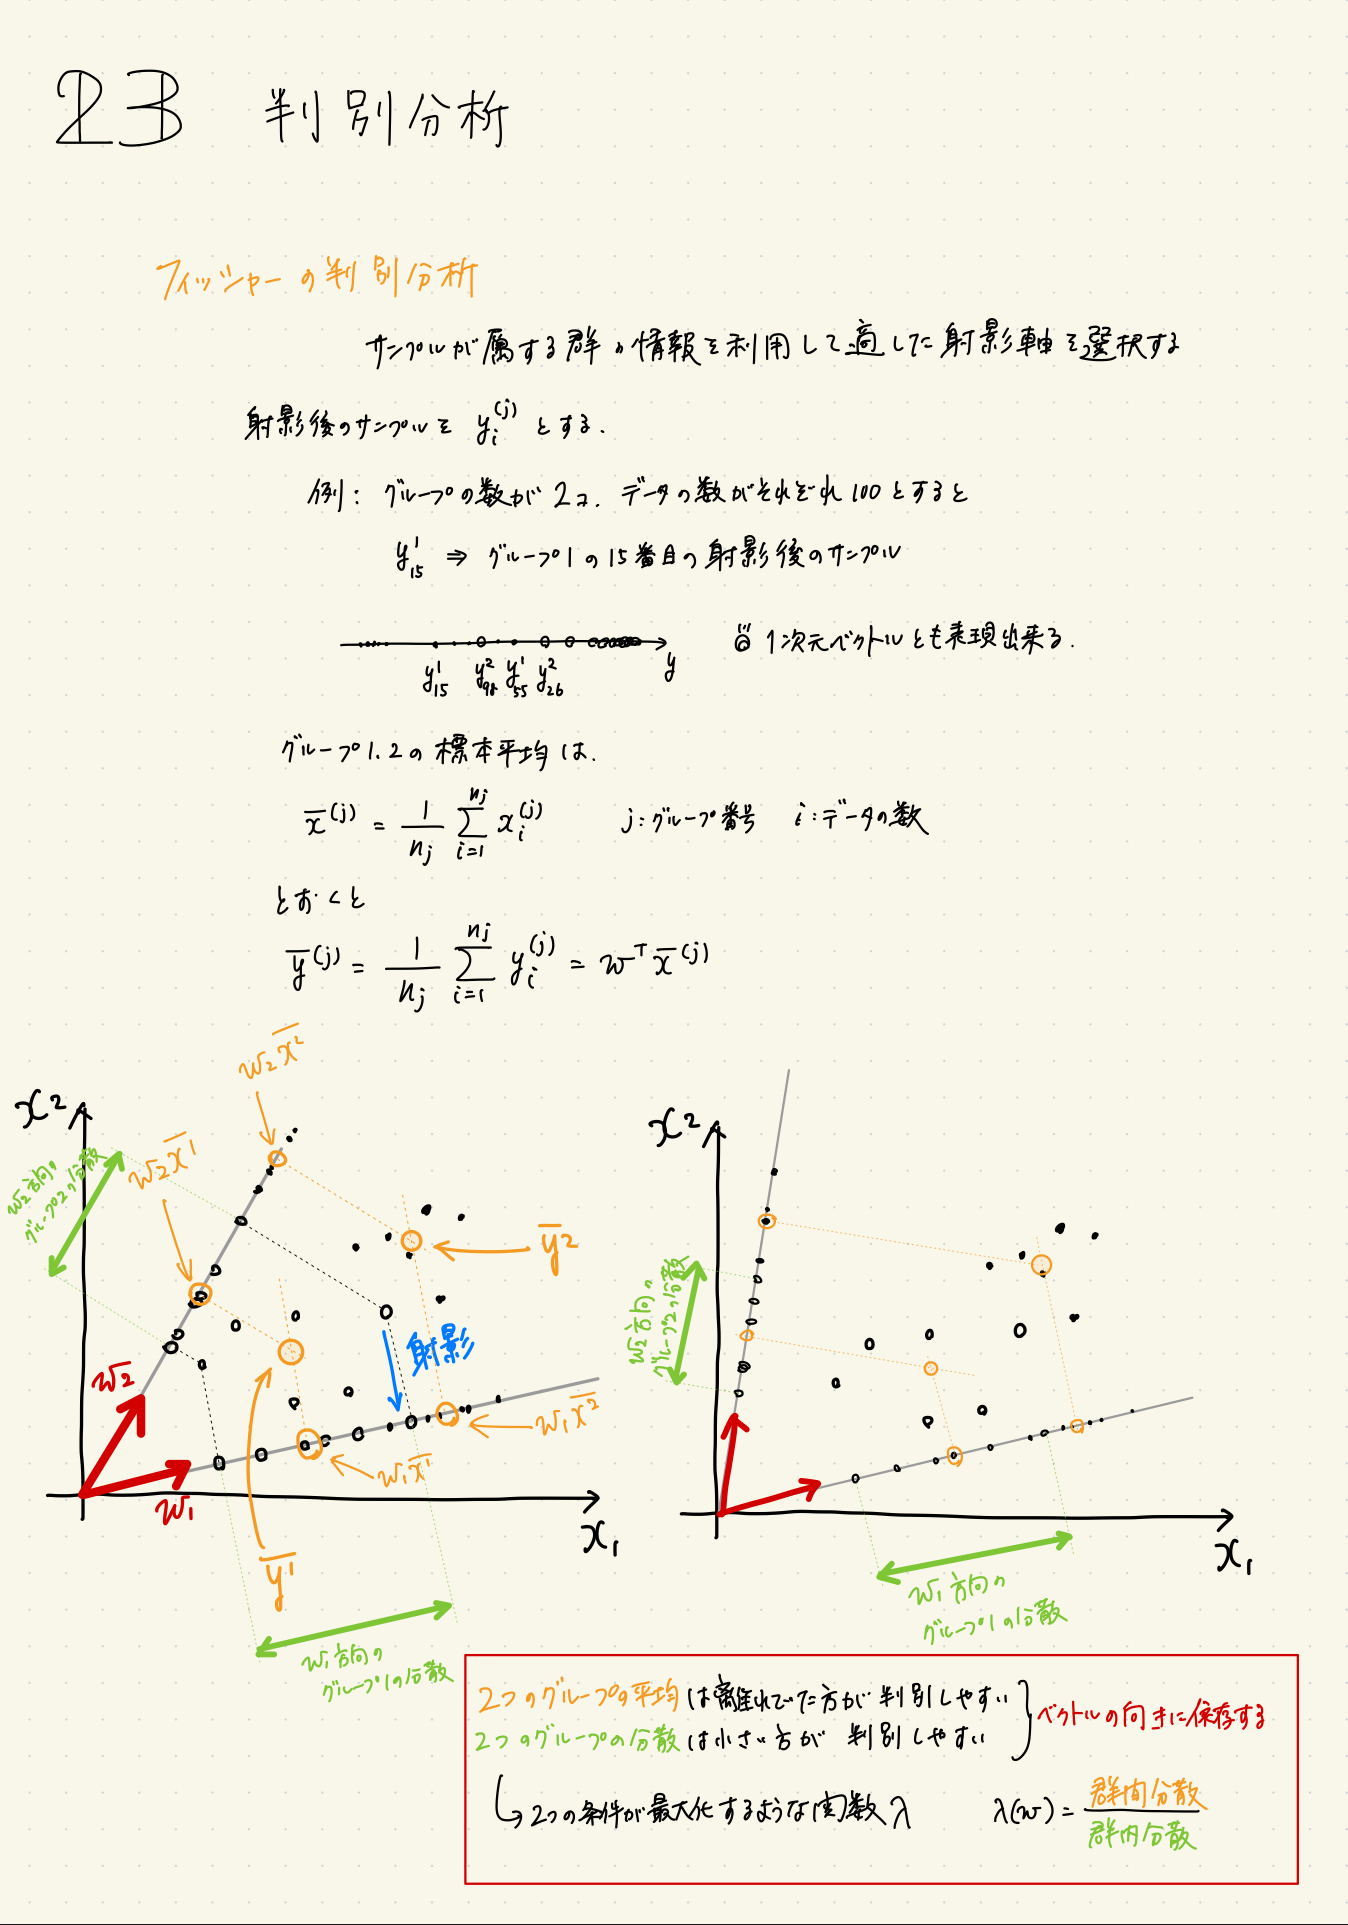 23 判別分析
フィッシャーの判別分析
サンプルが属する群の情報を利用して適した射影軸を選択する
射影後のサンプルを y_i^(j) とする.
例: グループの数が2コ. データの数がそれぞれ100とすると
y_15^1 ⇒ グループ1の15番目の射影後のサンプル
y_15^1 y_98^2 y_55^1 y_26^2 y
1次元ベクトルとも表現出来る.
グループ1.2の標本平均は.
x̄^(j) = 1/n_j Σ_{i=1}^{n_j} x_i^(j) j:グループ番号 i:データの数
とおくと
ȳ^(j) = 1/n_j Σ_{i=1}^{n_j} y_i^(j) = w^T x̄^(j)
w2 x̄^2
x2
w2 x̄^1
w2方向の
グループ2の分散
ȳ^2
射影
w2
w1 x̄^2
w1 x̄^1
w1
x1
ȳ^1
w1方向の
グループ1の分散
x2
w2方向の
グループ2の分散
x1
w1方向の
グループ1の分散
2つのグループの平均は離れてた方が判別しやすい
2つのグループの分散は小さい方が判別しやすい
ベクトルの向きに保存する
2つの条件が最大化するような関数λ λ(w) = 群間分散/群内分散